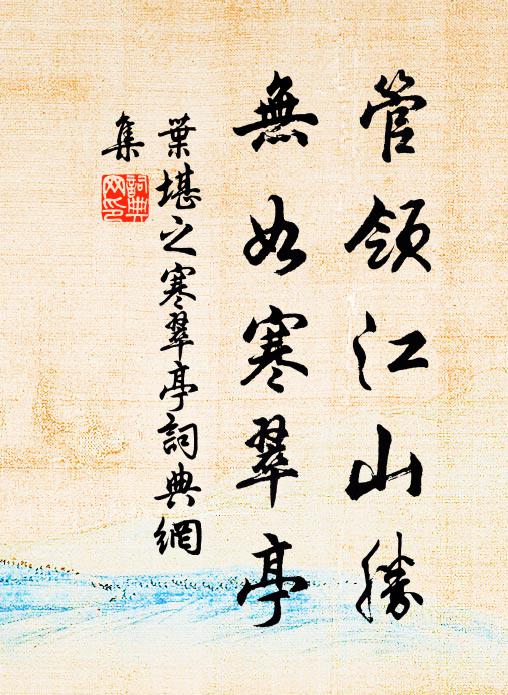 管領江山勝
無如寒翠亭
葉堪之寒翠亭詞典網
集
詞典
网印